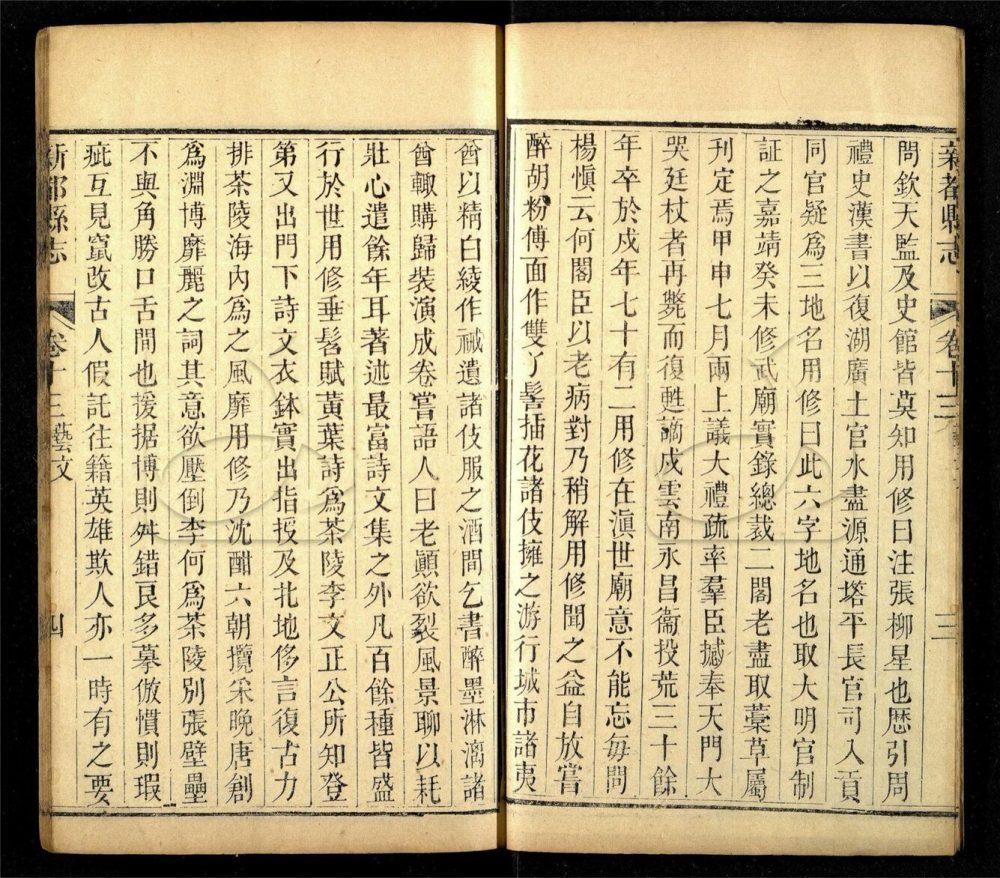 新都縣志
卷十三
三
問欽天監及史館皆莫知用修曰注張柳星也歴引周
禮史漢書以復湖廣土官水盡源通塔平長官司入貢
同官疑爲三地名用修曰此六字地名也取大明官制
証之嘉靖癸未修武廟實錄總裁二閣老盡取藁草屬
刊定焉甲申七月兩上議大禮疏率羣臣撼奉天門大
哭廷杖者再斃而復甦謫戍雲南永昌衞投荒三十餘
年卒於戍年七十有二用修在滇世廟意不能忘每問
楊慎云何閣臣以老病對乃稍解用修聞之益自放嘗
醉胡粉傅面作雙丫髻插花諸伎擁之游行城市諸夷
酋以精白綾作祴遺諸伎服之酒間乞書醉墨淋漓諸
酋輙購歸裝演成卷嘗語人曰老顚欲裂風景聊以耗
壯心遣餘年耳著述最富詩文集之外凡百餘種皆盛
行於世用修垂髫賦黃葉詩爲茶陵李文正公所知登
第又出門下詩文衣鉢實出指授及北地侈言復古力
排茶陵海內爲之風靡用修乃沈酣六朝攬采晚唐創
爲淵博靡麗之詞其意欲壓倒李何爲茶陵別張壁壘
不與角勝口舌間也援据博則舛錯良多摹倣慣則瑕
疵互見竄改古人假託往籍英雄欺人亦一時有之要
新都縣志
卷十三藝文
四